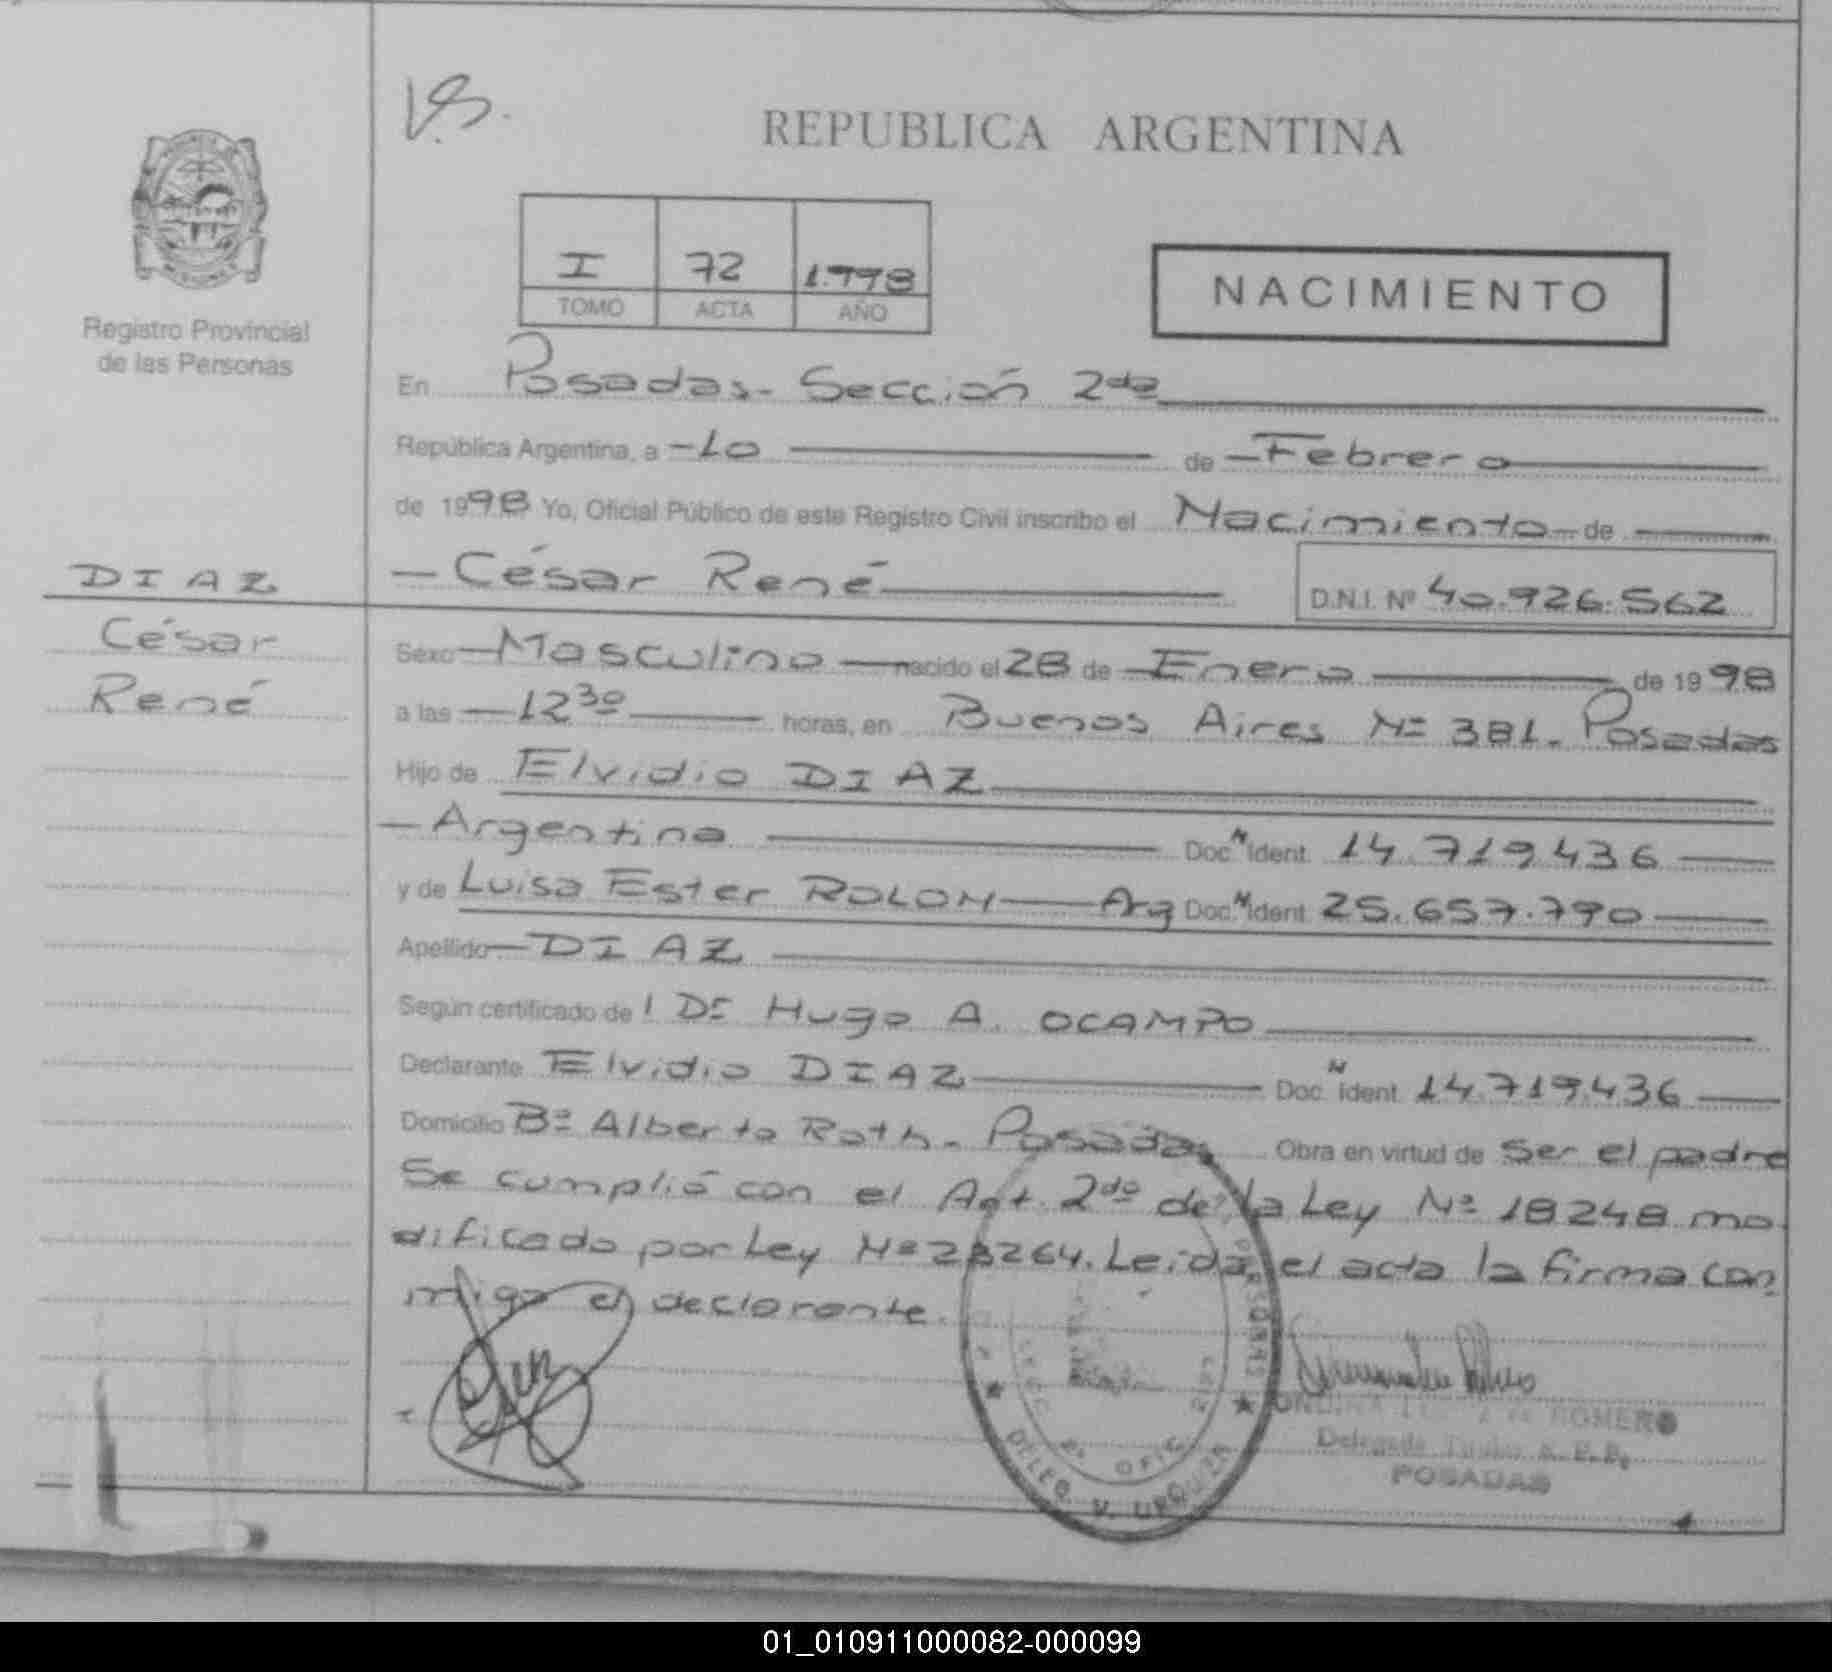 V.S.
REPUBLICA ARGENTINA
I 72 1.998
TOMO ACTA AÑO
NACIMIENTO
Registro Provincial
de las Personas
En Posadas- Sección 2da
República Argentina, a -10 de -Febrero
de 1998 Yo, Oficial Público de este Registro Civil inscribo el Nacimiento de
DIAZ
César
René
- César René D.N.I. Nº 40.926.562
Sexo - Masculino nacido el 28 de Enero de 1998
a las - 12 30 horas, en Buenos Aires Nº 381. Posadas
Hijo de Elvidio DIAZ
- Argentino Doc. N Ident. 14.719.436
y de Luisa Ester ROLON Arg Doc. N Ident. 25.657.790
Apellido - DIAZ
Según certificado de l Dr Hugo A. OCAMPO
Declarante Elvidio DIAZ Doc. N Ident. 14.719.436
Domicilio Bº Alberto Roth - Posadas Obra en virtud de ser el padre
Se cumplió con el Art. 2do de la Ley Nº 18248 mo-
dificado por Ley Nº 23264. Leída el acta la firma con
migo el declarante.
PERSONAS
DELEG. V. URQUIZA
ROMERO
Delegada Titular R. P. P.
POSADAS
01_010911000082-000099